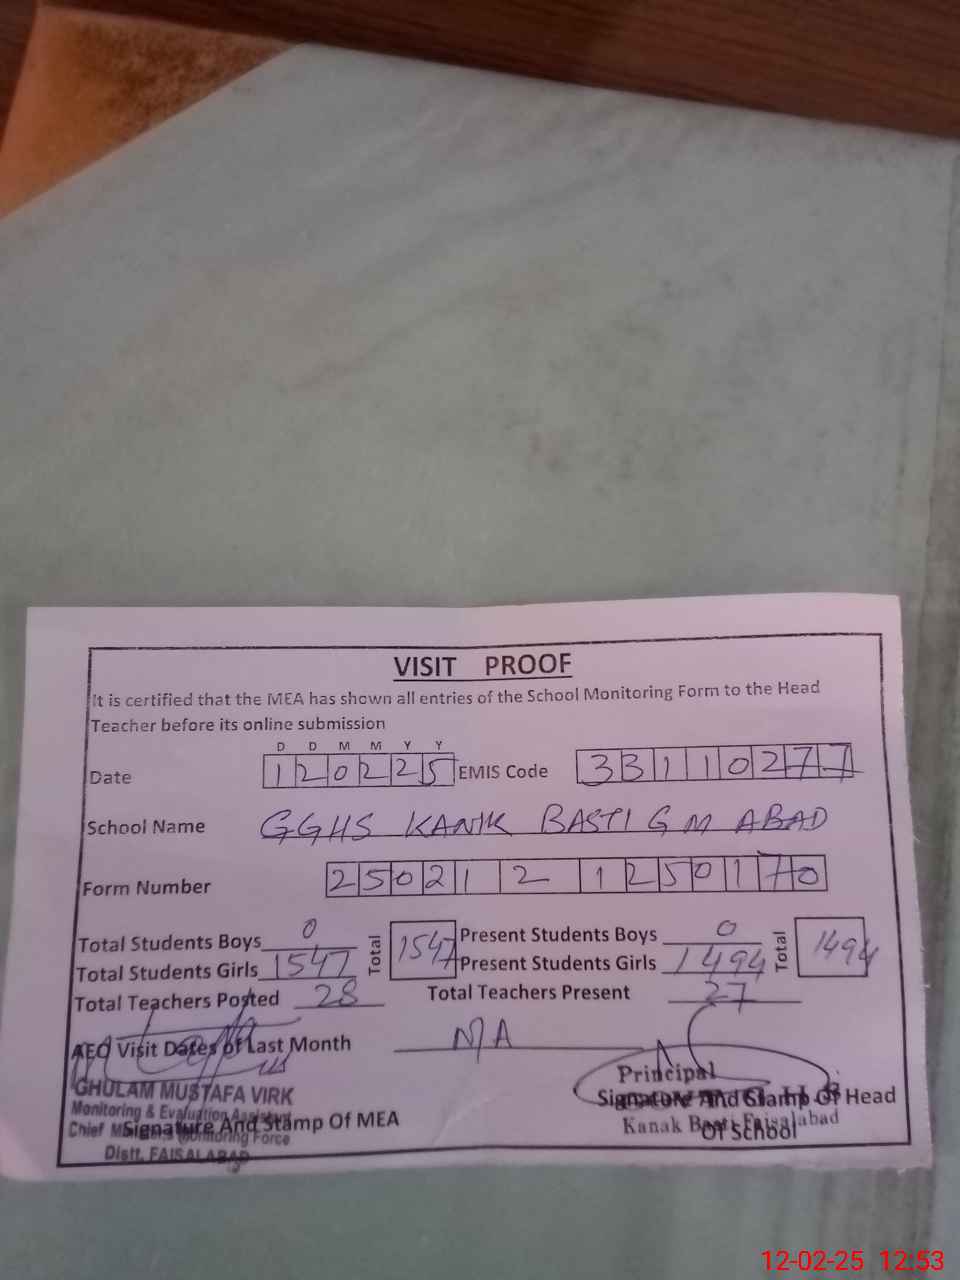 VISIT PROOF
It is certified that the MEA has shown all entries of the School Monitoring Form to the Head
Teacher before its online submission
D D M M Y Y
Date 120225 EMIS Code 33110277
School Name GGHS KANIK BASTI G M ABAD
Form Number 2502121250170
Total Students Boys 0 Total 1547 Present Students Boys 0 Total 1494
Total Students Girls 1547 Present Students Girls 1494
Total Teachers Posted 28 Total Teachers Present 27
AEO Visit Dates of Last Month N/A
GHULAM MUSTAFA VIRK
Monitoring & Evaluation Assistant
Chief Monitoring Force
Distt. FAISALABAD
Signature And Stamp Of MEA
Principal
Signature And Stamp Of Head
Of School
Kanak Basti Faisalabad
12-02-25 12:53